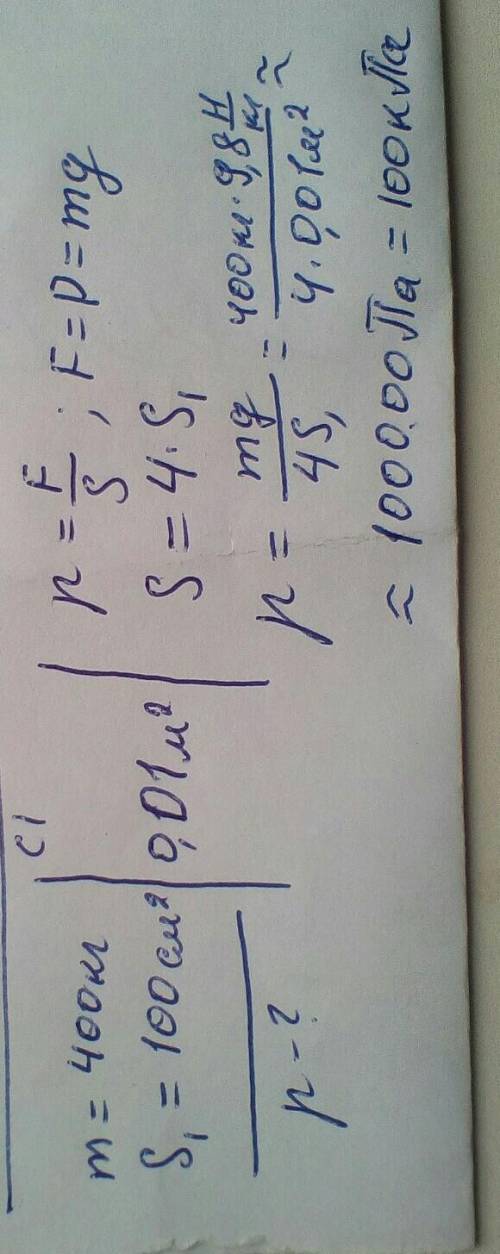 СИ
m = 400кг
S₁ = 100см² | 0,01м²
p – ?
p = F/S ; F = P = mg
S = 4 · S₁
p = mg/4S₁ = 400кг · 9,8 Н/кг / 4 · 0,01м² ≈
≈ 100000Па = 100кПа